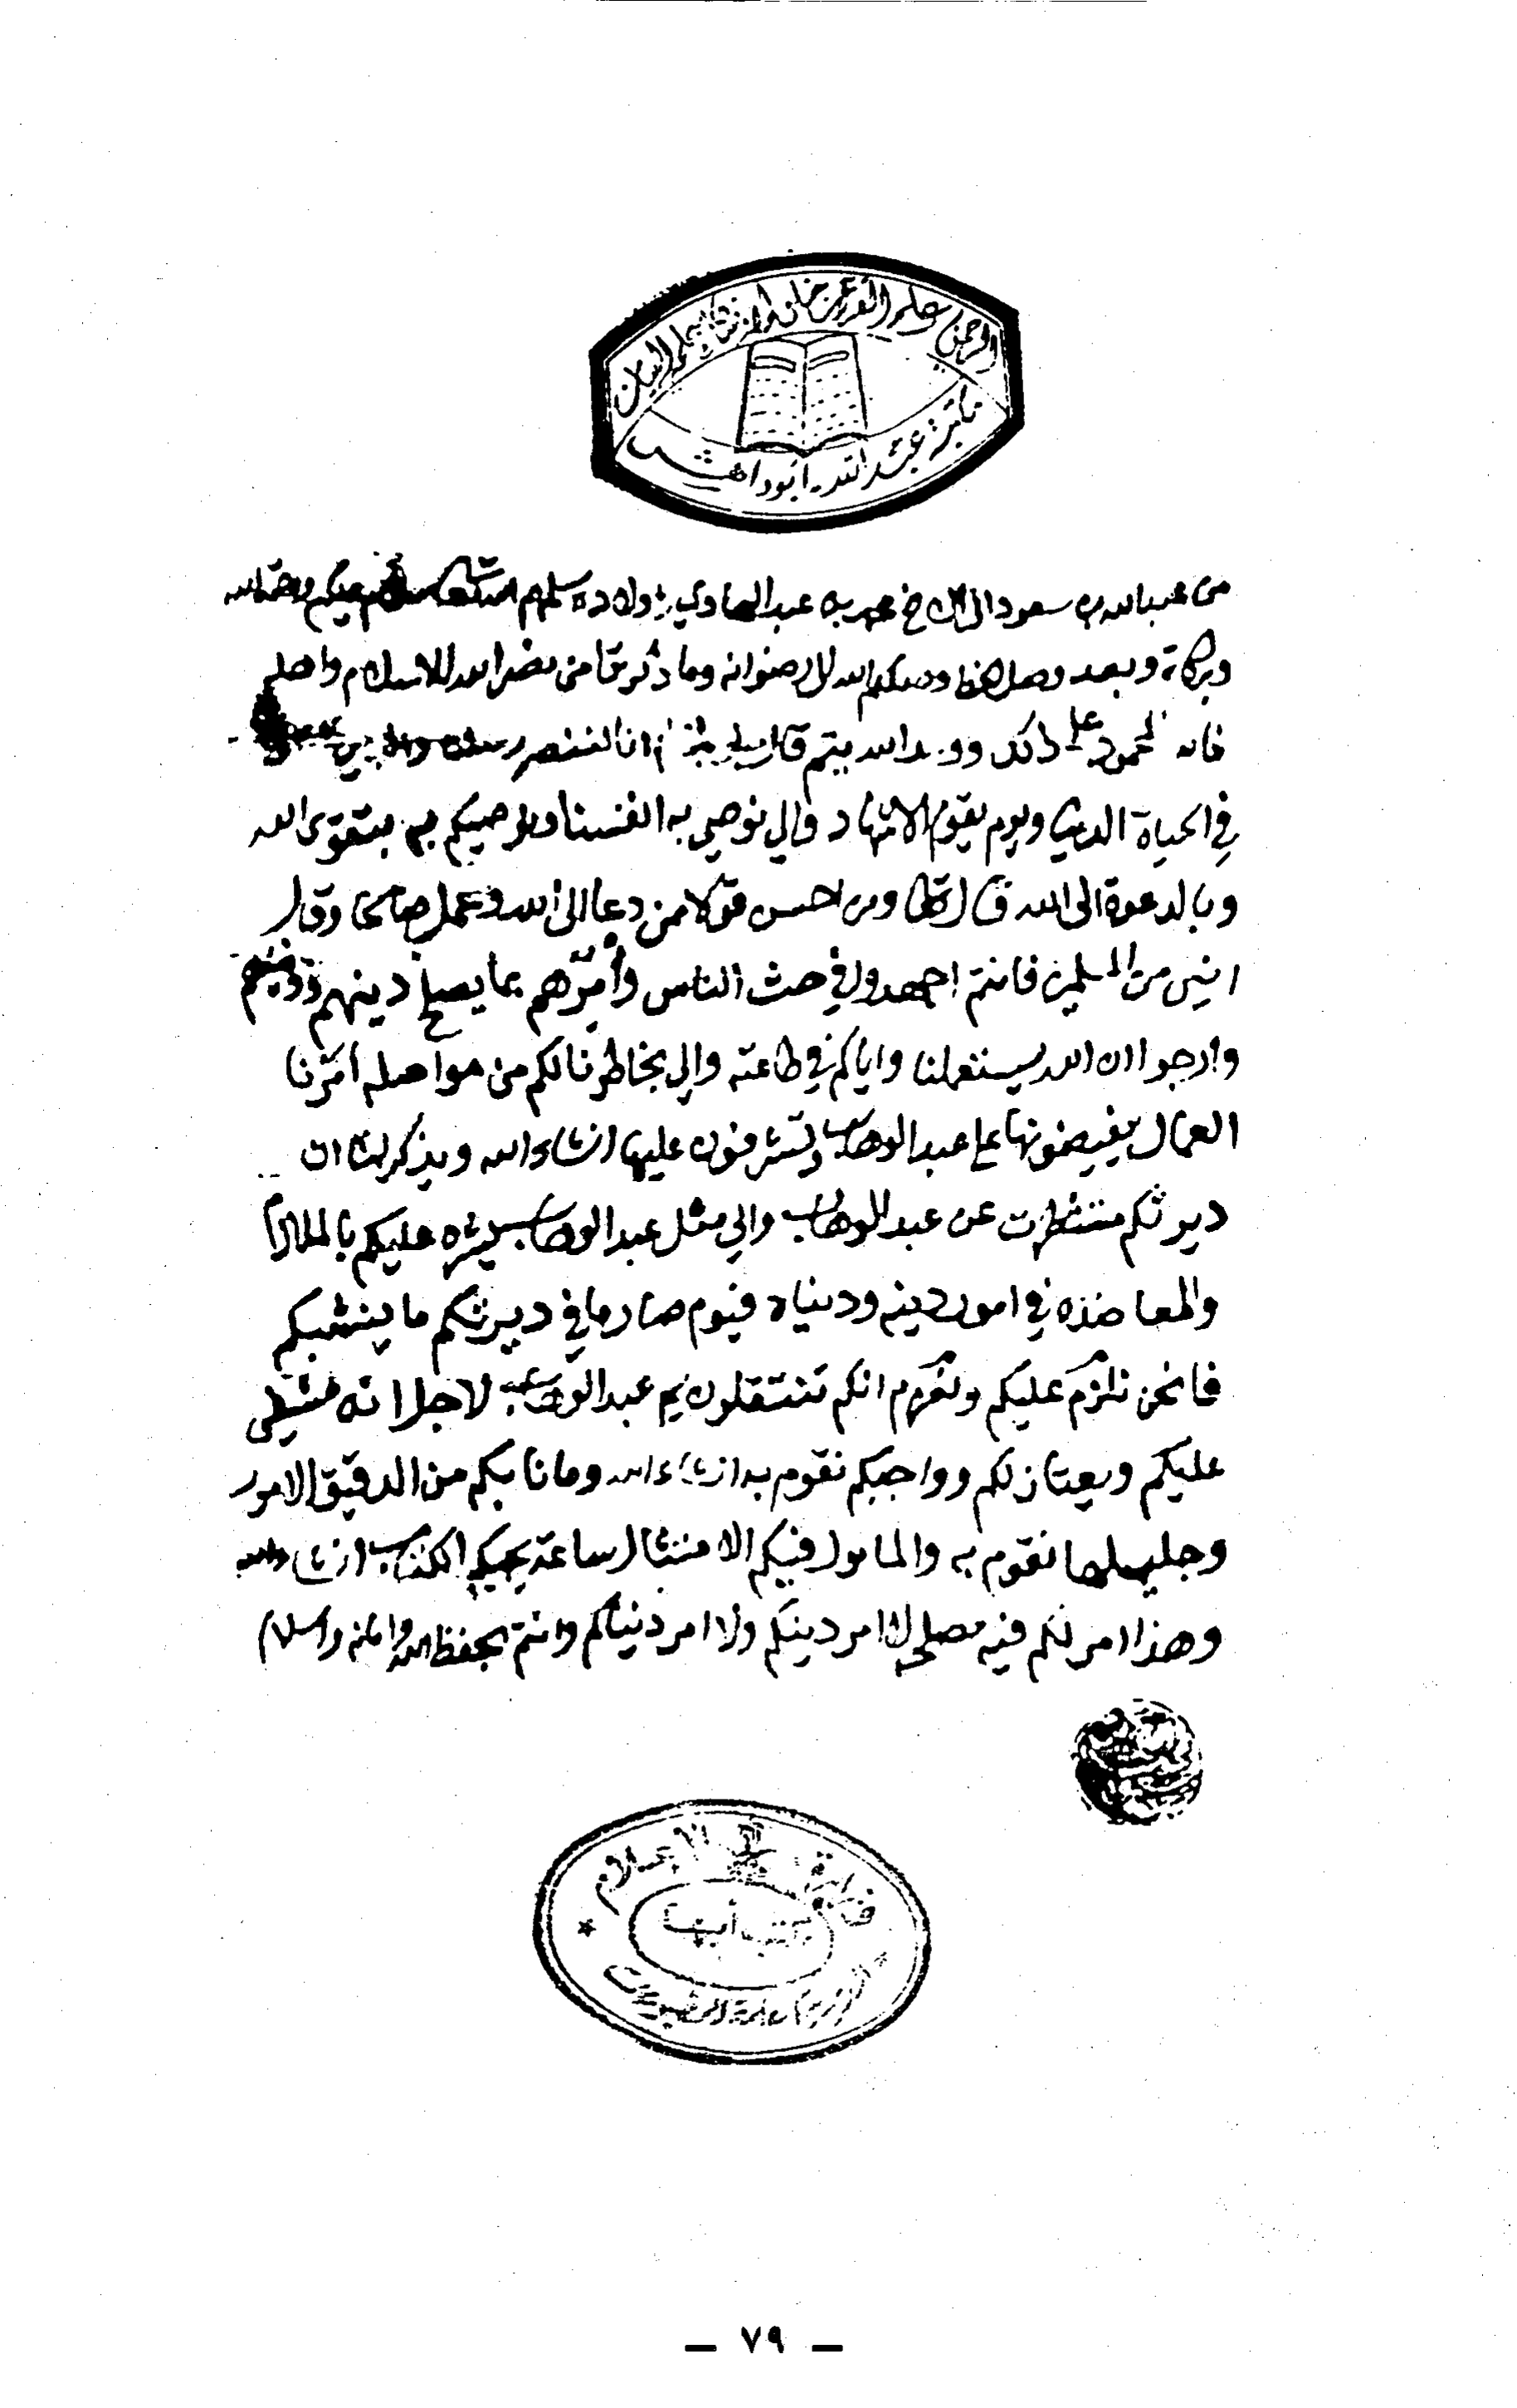 الرحمن علم القرآن خلق الإنسان علمه البيان
مكتبة عبد الله أبو داهش
من عبدالله بن سعود الى الاخ محمد بن عبدالهادي واولاده سلمهم الله تعالى سلام عليكم ورحمة الله
وبركاته وبعد وصل الخط وصلكم الله الى رضوانه وما ذكرتوا من نصر الله للاسلام واهله
فالله المحمود على ذلك ووعد الله يتم قال انا لننصر رسلنا والذين
في الحياة الدنيا ويوم يقوم الاشهاد والي نوصي به انفسنا ونوصيكم به بتقوى الله
وبالدعوة الى الله قال تعالى ومن احسن قولا ممن دعا الى الله وعمل صالحا وقال
انني من المسلمين فانتم اجهدوا في حث الناس وأمرهم بما يصلح دينهم
وارجوا ان الله يستعملنا واياكم في طاعته والي بخاطرنا لكم من مواصله أمرنا
العمال يفيضونها على عبدالوهاب وتشرفون عليها انشاء الله ويذكر لنا ان
ديرتكم متنظرت عن عبدالوهاب والي مثل عبدالوهاب عليكم بالملازم
والمعاضده في امور دينه ودنياه فيوم صار ما في ديرتكم ما ينشبكم
فانحن نلزم عليكم ونعزم انكم تنتقلون يم عبدالوهاب لاجل انه
عليكم ويعتاز لكم وواجبكم نقوم به انشاء الله وما نابكم من الدقيق الامور
وجليلها نقوم به والمامول فيكم الامتثال ساعة يجيكم الكتاب انشاء الله
وهذا امر لكم فيه مصلحه لا امر دينكم ولا امر دنياكم وانتم بحفظ الله وامانه والسلام
الإعلام
مكتب أبها
ـ ٧٩ ـ